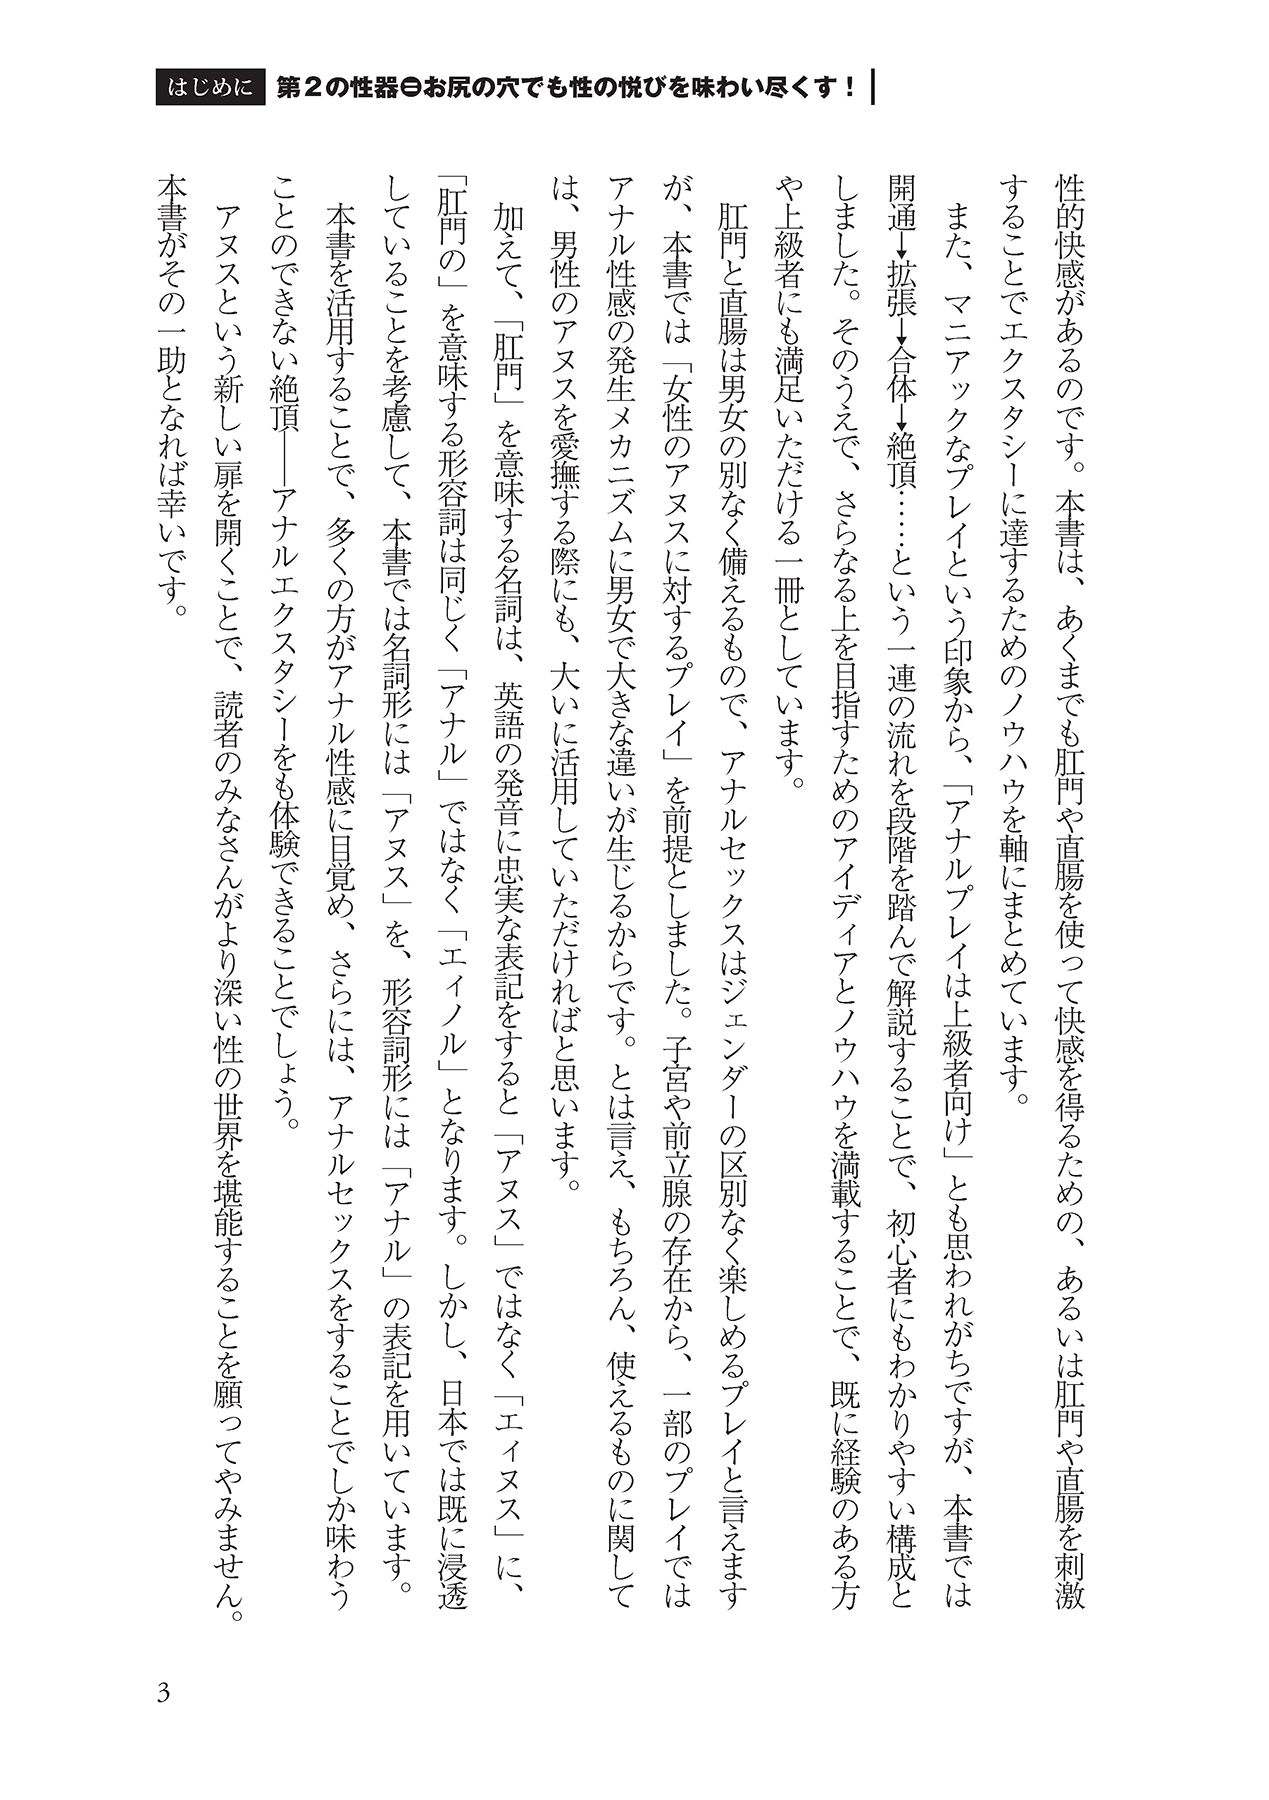 はじめに 第2の性器⊖お尻の穴でも性の悦びを味わい尽くす!
性的快感があるのです。本書は、あくまでも肛門や直腸を使って快感を得るための、あるいは肛門や直腸を刺激
することでエクスタシーに達するためのノウハウを軸にまとめています。
また、マニアックなプレイという印象から、「アナルプレイは上級者向け」とも思われがちですが、本書では
開通→拡張→合体→絶頂……という一連の流れを段階を踏んで解説することで、初心者にもわかりやすい構成と
しました。そのうえで、さらなる上を目指すためのアイディアとノウハウを満載することで、既に経験のある方
や上級者にも満足いただける一冊としています。
肛門と直腸は男女の別なく備えるもので、アナルセックスはジェンダーの区別なく楽しめるプレイと言えます
が、本書では「女性のアヌスに対するプレイ」を前提としました。子宮や前立腺の存在から、一部のプレイでは
アナル性感の発生メカニズムに男女で大きな違いが生じるからです。とは言え、もちろん、使えるものに関して
は、男性のアヌスを愛撫する際にも、大いに活用していただければと思います。
加えて、「肛門」を意味する名詞は、英語の発音に忠実な表記をすると「アヌス」ではなく「エィヌス」に、
「肛門の」を意味する形容詞は同じく「アナル」ではなく「エィノル」となります。しかし、日本では既に浸透
していることを考慮して、本書では名詞形には「アヌス」を、形容詞形には「アナル」の表記を用いています。
本書を活用することで、多くの方がアナル性感に目覚め、さらには、アナルセックスをすることでしか味わう
ことのできない絶頂――アナルエクスタシーをも体験できることでしょう。
アヌスという新しい扉を開くことで、読者のみなさんがより深い性の世界を堪能することを願ってやみません。
本書がその一助となれば幸いです。
3